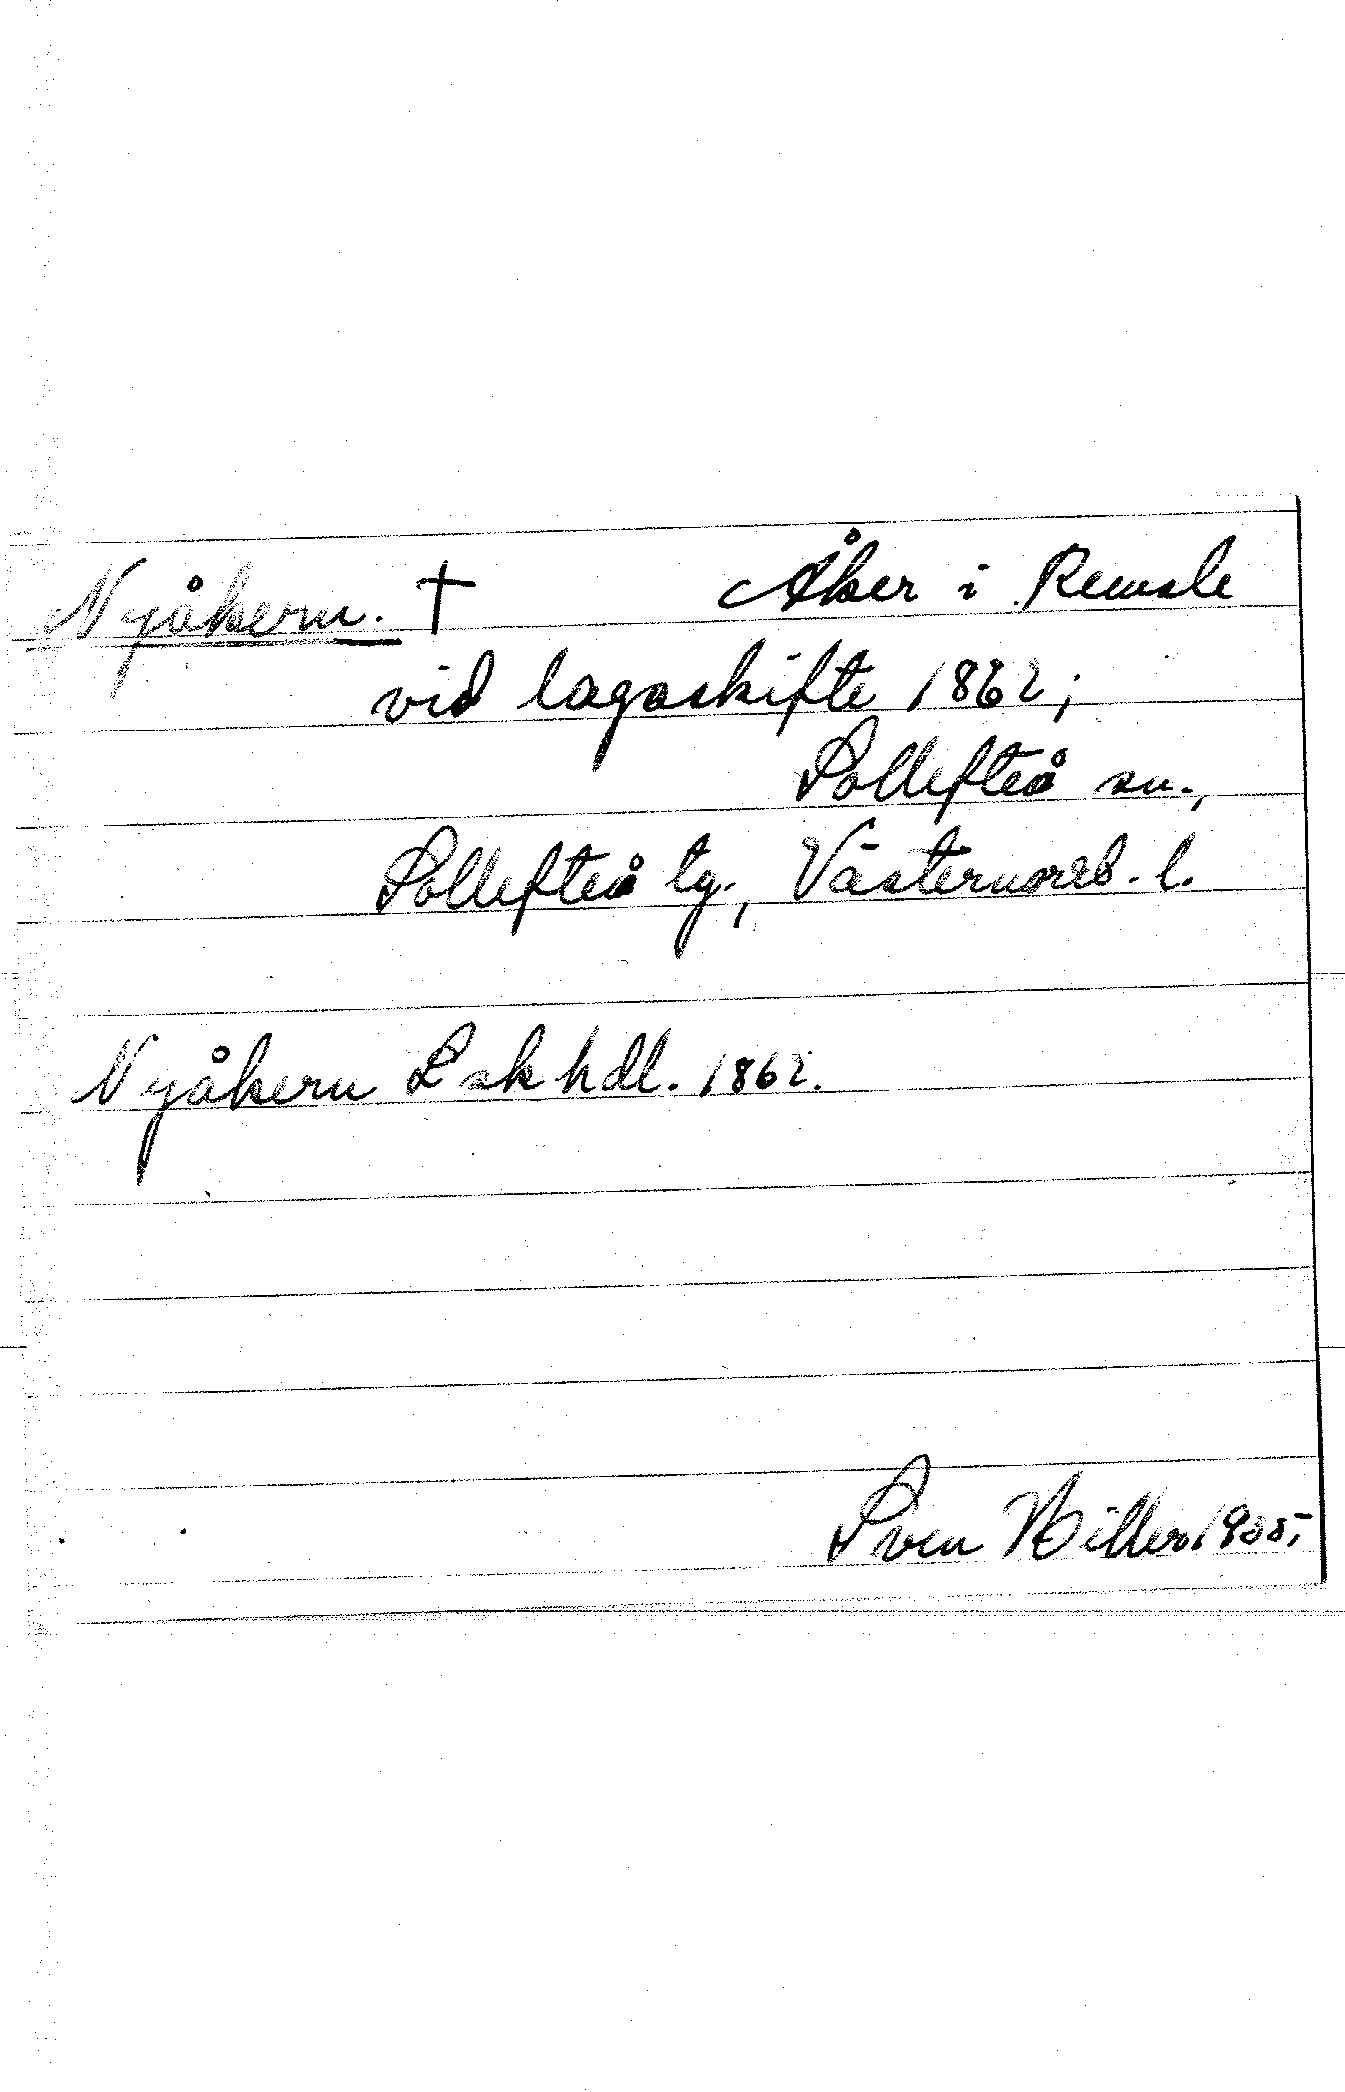 Nyåkern. † Åker i Remsle
vid lagaskifte 1862;
Sollefteå sn.,
Sollefteå tg., Västernorrl. l.
Nyåkern Lskhdl. 1862.
Sven